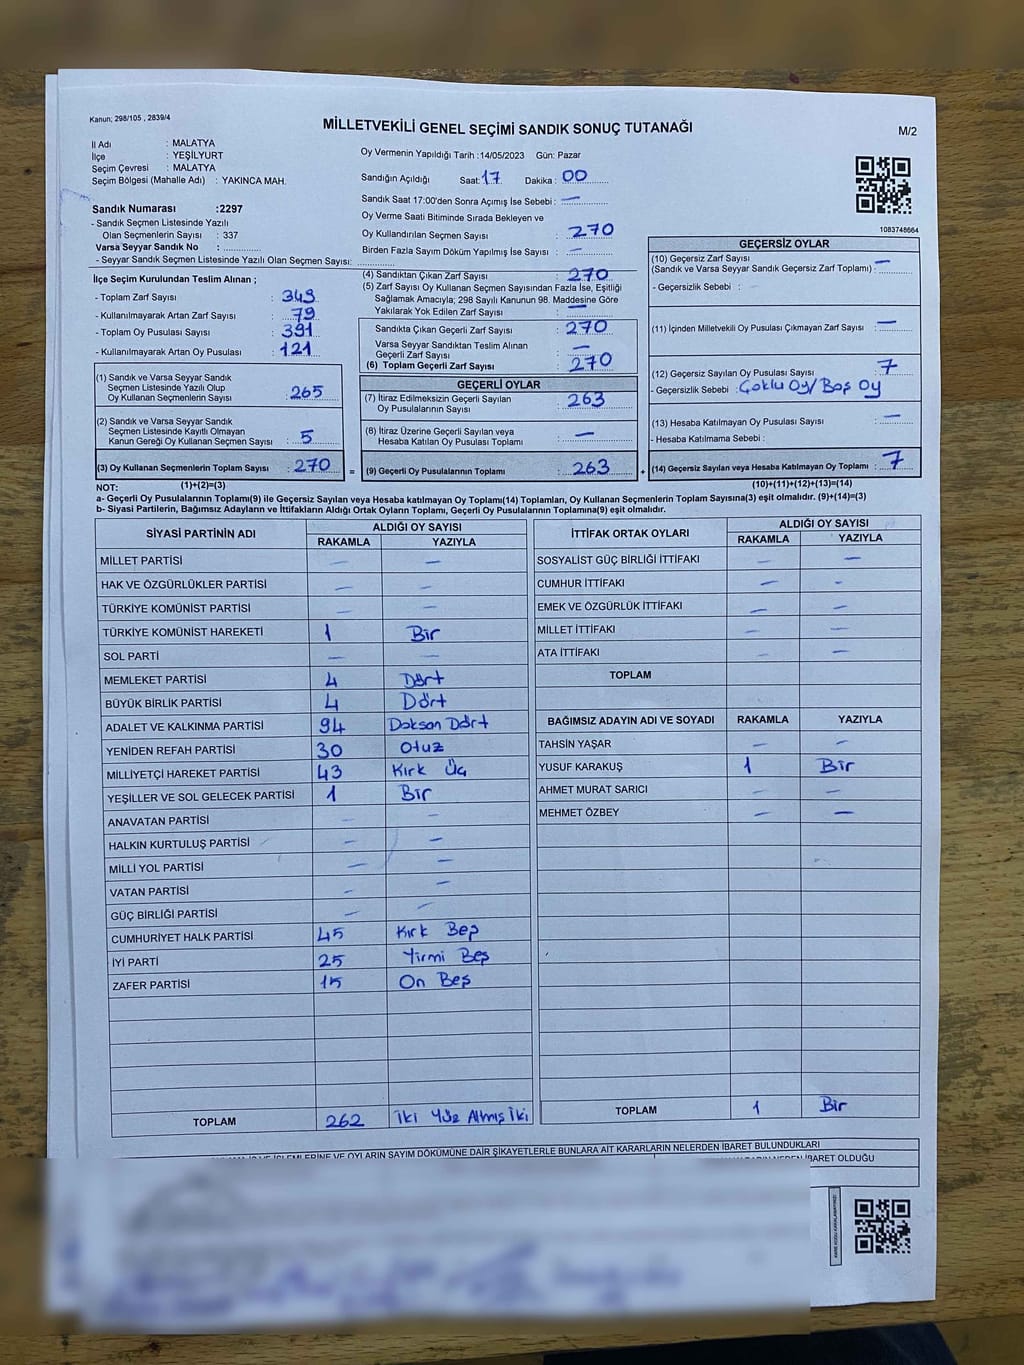 Kanun; 298/105 , 2839/4
MİLLETVEKİLİ GENEL SEÇİMİ SANDIK SONUÇ TUTANAĞI
M/2
İl Adı : MALATYA
İlçe : YEŞİLYURT
Seçim Çevresi : MALATYA
Seçim Bölgesi (Mahalle Adı) : YAKINCA MAH.
Oy Vermenin Yapıldığı Tarih :14/05/2023 Gün: Pazar
Sandığın Açıldığı Saat: 17 Dakika : 00
Sandık Saat 17:00'den Sonra Açımış İse Sebebi : —
Oy Verme Saati Bitiminde Sırada Bekleyen ve
Oy Kullandırılan Seçmen Sayısı : 270
Birden Fazla Sayım Döküm Yapılmış İse Sayısı : —
1083748664
Sandık Numarası :2297
- Sandık Seçmen Listesinde Yazılı
Olan Seçmenlerin Sayısı : 337
Varsa Seyyar Sandık No :
- Seyyar Sandık Seçmen Listesinde Yazılı Olan Seçmen Sayısı:
İlçe Seçim Kurulundan Teslim Alınan ;
- Toplam Zarf Sayısı : 349
- Kullanılmayarak Artan Zarf Sayısı : 79
- Toplam Oy Pusulası Sayısı : 391
- Kullanılmayarak Artan Oy Pusulası : 121
(1) Sandık ve Varsa Seyyar Sandık
Seçmen Listesinde Yazılı Olup
Oy Kullanan Seçmenlerin Sayısı : 265
(2) Sandık ve Varsa Seyyar Sandık
Seçmen Listesinde Kayıtlı Olmayan
Kanun Gereği Oy Kullanan Seçmen Sayısı : 5
(3) Oy Kullanan Seçmenlerin Toplam Sayısı : 270
(1)+(2)=(3)
(4) Sandıktan Çıkan Zarf Sayısı : 270
(5) Zarf Sayısı Oy Kullanan Seçmen Sayısından Fazla İse, Eşitliği
Sağlamak Amacıyla; 298 Sayılı Kanunun 98. Maddesine Göre
Yakılarak Yok Edilen Zarf Sayısı : —
Sandıkta Çıkan Geçerli Zarf Sayısı : 270
Varsa Seyyar Sandıktan Teslim Alınan
Geçerli Zarf Sayısı : —
(6) Toplam Geçerli Zarf Sayısı : 270
GEÇERLİ OYLAR
(7) İtiraz Edilmeksizin Geçerli Sayılan
Oy Pusulalarının Sayısı : 263
(8) İtiraz Üzerine Geçerli Sayılan veya
Hesaba Katılan Oy Pusulası Toplamı : —
= (9) Geçerli Oy Pusulalarının Toplamı : 263 +
GEÇERSİZ OYLAR
(10) Geçersiz Zarf Sayısı
(Sandık ve Varsa Seyyar Sandık Geçersiz Zarf Toplamı) : —
- Geçersizlik Sebebi :
(11) İçinden Milletvekili Oy Pusulası Çıkmayan Zarf Sayısı : —
(12) Geçersiz Sayılan Oy Pusulası Sayısı : 7
- Geçersizlik Sebebi : Çoklu Oy/Boş Oy
(13) Hesaba Katılmayan Oy Pusulası Sayısı : —
- Hesaba Katılmama Sebebi :
(14) Geçersiz Sayılan veya Hesaba Katılmayan Oy Toplamı : 7
(10)+(11)+(12)+(13)=(14)
NOT:
a- Geçerli Oy Pusulalarının Toplamı(9) ile Geçersiz Sayılan veya Hesaba katılmayan Oy Toplamı(14) Toplamları, Oy Kullanan Seçmenlerin Toplam Sayısına(3) eşit olmalıdır. (9)+(14)=(3)
b- Siyasi Partilerin, Bağımsız Adayların ve İttifakların Aldığı Ortak Oyların Toplamı, Geçerli Oy Pusulalarının Toplamına(9) eşit olmalıdır.
SİYASİ PARTİNİN ADI ALDIĞI OY SAYISI
RAKAMLA YAZIYLA
MİLLET PARTİSİ — —
HAK VE ÖZGÜRLÜKLER PARTİSİ — —
TÜRKİYE KOMÜNİST PARTİSİ — —
TÜRKİYE KOMÜNİST HAREKETİ 1 Bir
SOL PARTİ — —
MEMLEKET PARTİSİ 4 Dört
BÜYÜK BİRLİK PARTİSİ 4 Dört
ADALET VE KALKINMA PARTİSİ 94 Doksan Dört
YENİDEN REFAH PARTİSİ 30 Otuz
MİLLİYETÇİ HAREKET PARTİSİ 43 Kırk Üç
YEŞİLLER VE SOL GELECEK PARTİSİ 1 Bir
ANAVATAN PARTİSİ — —
HALKIN KURTULUŞ PARTİSİ — —
MİLLİ YOL PARTİSİ — —
VATAN PARTİSİ — —
GÜÇ BİRLİĞİ PARTİSİ — —
CUMHURİYET HALK PARTİSİ 45 Kırk Beş
İYİ PARTİ 25 Yirmi Beş
ZAFER PARTİSİ 15 On Beş
TOPLAM 262 İki Yüz Altmış İki
İTTİFAK ORTAK OYLARI ALDIĞI OY SAYISI
RAKAMLA YAZIYLA
SOSYALİST GÜÇ BİRLİĞİ İTTİFAKI — —
CUMHUR İTTİFAKI — —
EMEK VE ÖZGÜRLÜK İTTİFAKI — —
MİLLET İTTİFAKI — —
ATA İTTİFAKI — —
TOPLAM
BAĞIMSIZ ADAYIN ADI VE SOYADI RAKAMLA YAZIYLA
TAHSİN YAŞAR — —
YUSUF KARAKUŞ 1 Bir
AHMET MURAT SARICI — —
MEHMET ÖZBEY — —
TOPLAM 1 Bir
İŞLEMLERİNE VE OYLARIN SAYIM DÖKÜMÜNE DAİR ŞİKAYETLERLE BUNLARA AİT KARARLARIN NELERDEN İBARET BULUNDUKLARI
NEDEN İBARET OLDUĞU